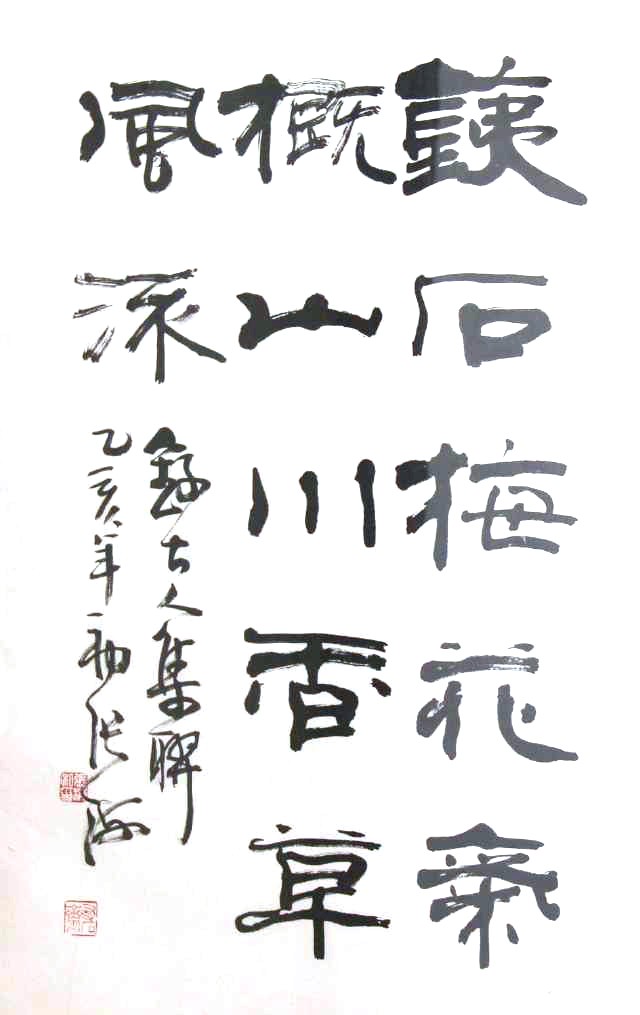 鐵石梅花氣
概山川香草
風流
錄古人集聯
乙亥年初